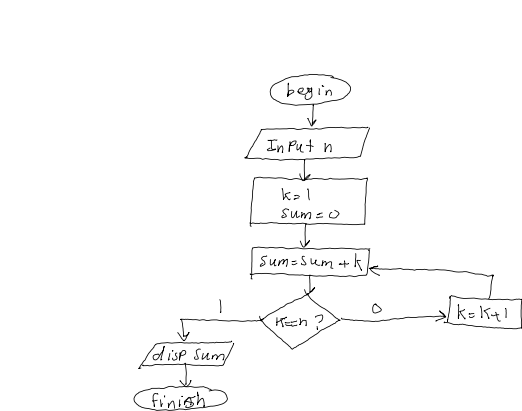 begin
Input n
k=1
sum=0
sum=sum+k
1
K==n?
0
k=k+1
disp sum
finish